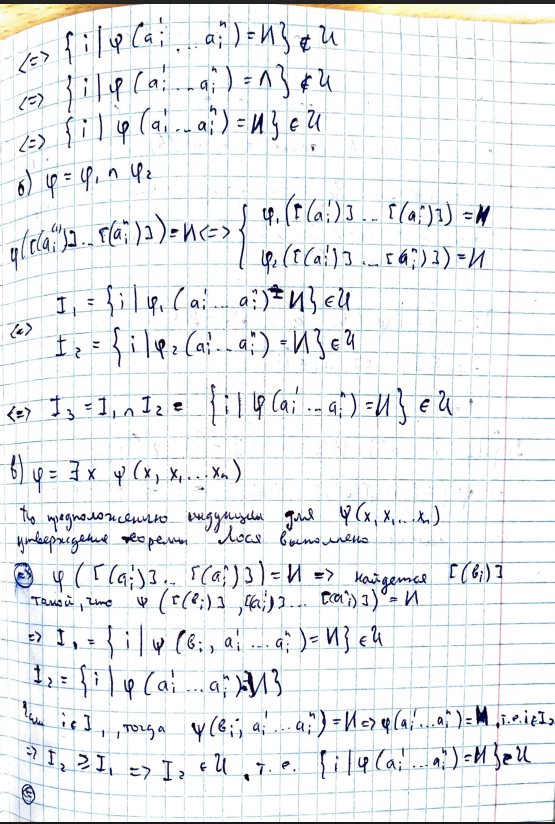 <=> { i | φ (aᵢ¹ ... aᵢⁿ) = И } ∉ U
<=> { i | φ (aᵢ¹ ... aᵢⁿ) = Л } ∉ U
<=> { i | φ (aᵢ¹ ... aᵢⁿ) = И } ∈ U
б) φ = φ₁ ∩ φ₂
φ([(aᵢ¹)] ... [(aᵢⁿ)]) = И <=> { φ₁ ([(aᵢ¹)] ... [(aᵢⁿ)]) = И
φ₂ ([(aᵢ¹)] ... [(aᵢⁿ)]) = И
I₁ = { i | φ₁ (aᵢ¹ ... aᵢⁿ) = И } ∈ U
<=>
I₂ = { i | φ₂ (aᵢ¹ ... aᵢⁿ) = И } ∈ U
<=> I₃ = I₁ ∩ I₂ = { i | φ (aᵢ¹ ... aᵢⁿ) = И } ∈ U
в) φ = ∃x ψ (x, x₁ ... xₙ)
По предположению индукции для ψ (x, x₁ ... xₙ)
утверждение теоремы Лося выполнено
=> φ ([(aᵢ¹)] ... [(aᵢⁿ)]) = И => найдется [(вᵢ)]
такой, что ψ ([(вᵢ)], [(aᵢ¹)] ... [(aᵢⁿ)]) = И
=> I₁ = { i | ψ (вᵢ, aᵢ¹ ... aᵢⁿ) = И } ∈ U
I₂ = { i | φ (aᵢ¹ ... aᵢⁿ) = И }
i ∈ I₁, тогда ψ (вᵢ, aᵢ¹ ... aᵢⁿ) = И => φ (aᵢ¹ ... aᵢⁿ) = И, т.е. i ∈ I₂
=> I₂ ⊇ I₁ => I₂ ∈ U, т.е. { i | φ (aᵢ¹ ... aᵢⁿ) = И } ∈ U
<=